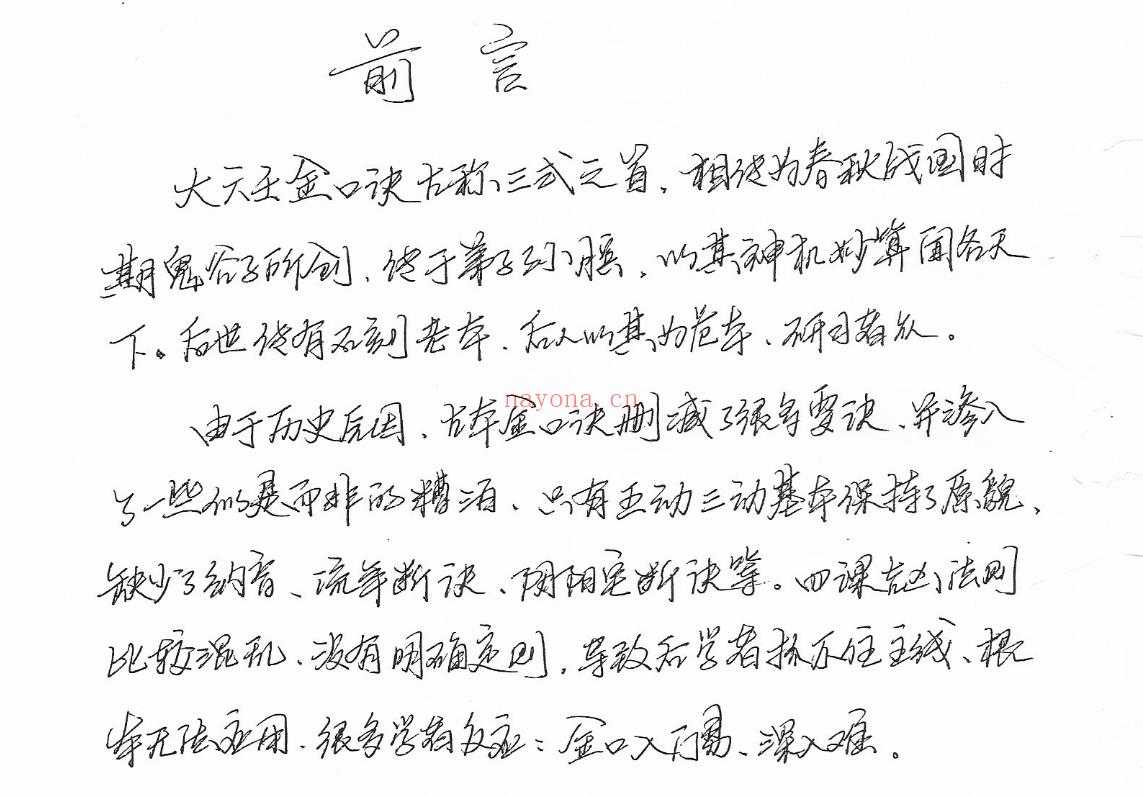 前言
大六壬金口诀古称三式之首，相传为春秋战国时
期鬼谷子所创，传于弟子孙膑，以其神机妙算闻名天
下。后世传有石刻老本，后人以其为范本，研习者众。
nayona.cn
由于历史原因，古本金口诀删减了很多要诀，并渗入
了一些似是而非的糟泊，只有五动三动基本保持了原貌，
缺少了纳音、流年断诀、阴阳宅断诀等。四课吉凶法则
比较混乱、没有明确定则，导致后学者抓不住主线、根
本无法应用，很多学者反应：金口入门易、深入难。